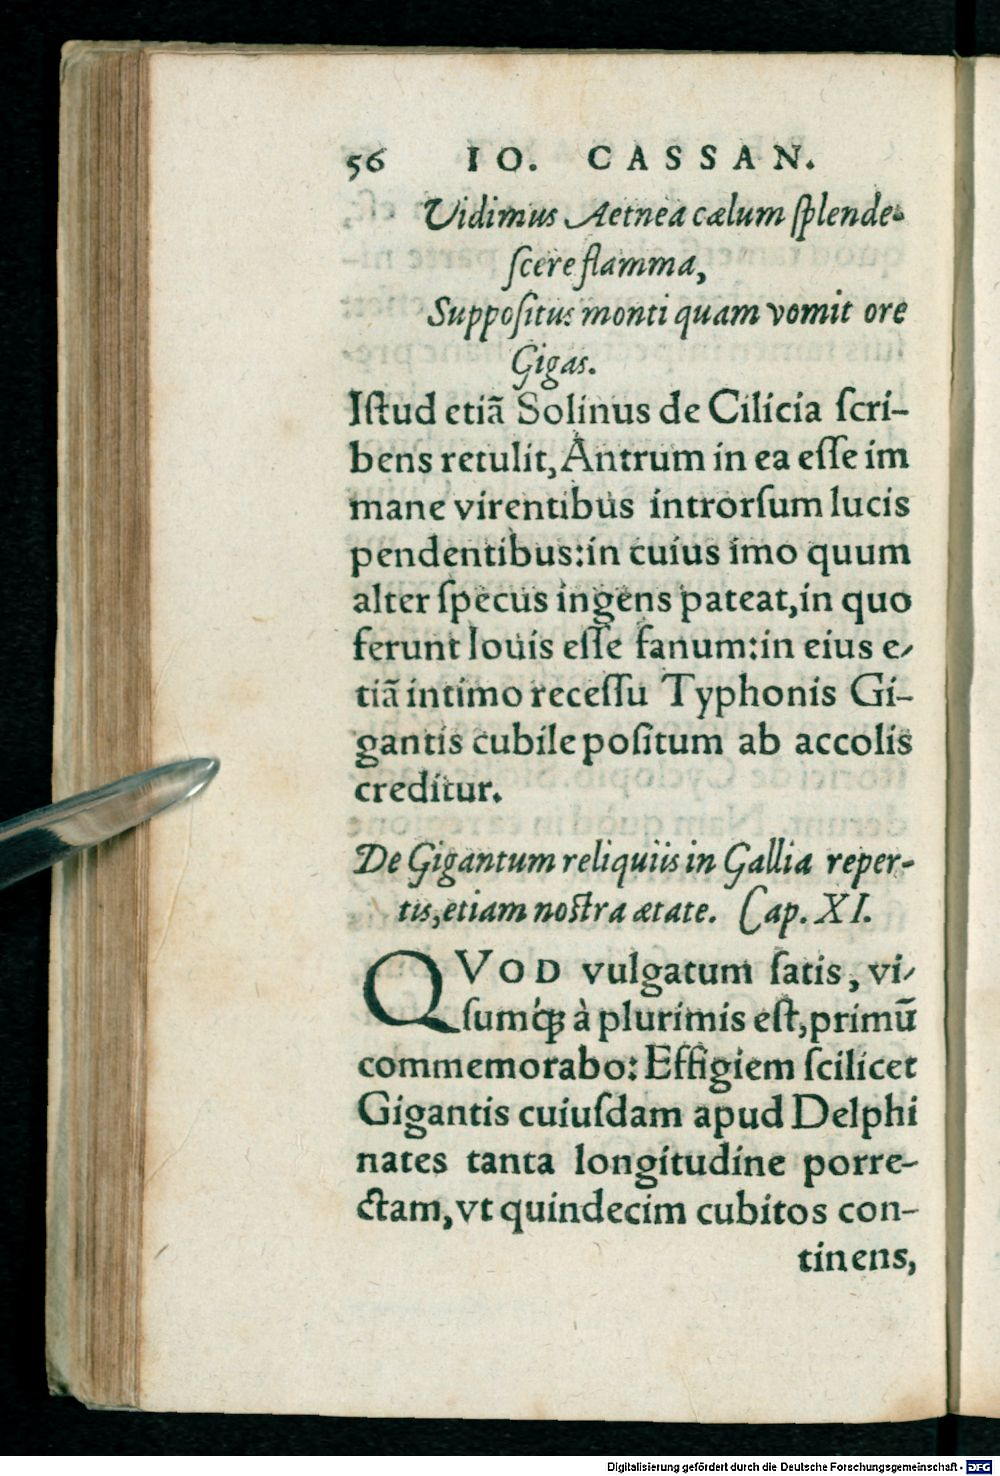 56 IO. CASSAN.
Vidimus Aetnea cælum ſplende-
ſcere flamma,
Suppoſitus monti quam vomit ore
Gigas.
Iſtud etiā Solinus de Cilicia ſcri-
bens retulit, Antrum in ea eſſe im
mane virentibus introrſum lucis
pendentibus: in cuius imo quum
alter ſpecus ingens pateat, in quo
ferunt Iouis eſſe fanum: in eius e-
tiā intimo receſſu Typhonis Gi-
gantis cubile poſitum ab accolis
creditur.
De Gigantum reliquiis in Gallia reper-
tis, etiam noſtra ætate. Cap. XI.
QVOD vulgatum ſatis, vi-
ſumq́ꝫ à plurimis eſt, primū
commemorabo: Effigiem ſcilicet
Gigantis cuiuſdam apud Delphi
nates tanta longitudine porre-
ctam, vt quindecim cubitos con-
tinens,
Digitalisierung gefördert durch die Deutsche Forschungsgemeinschaft - DFG